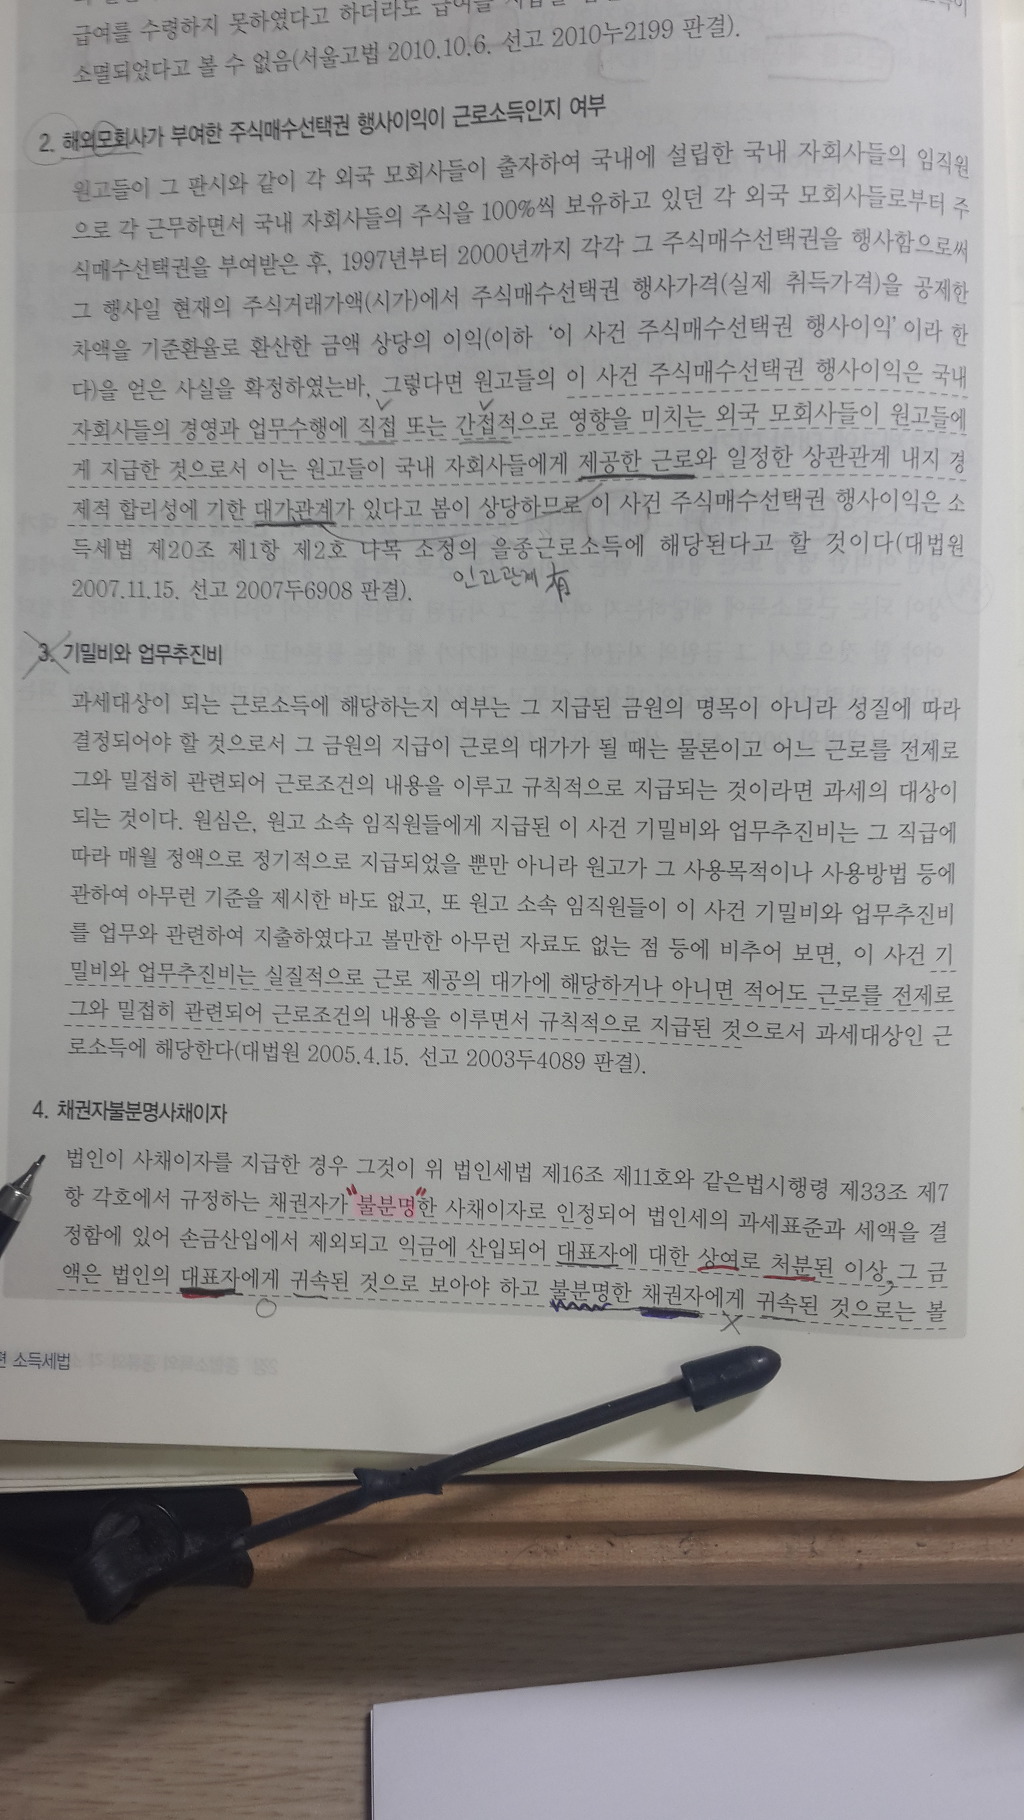 급여를 수령하지 못하였다고 하더라도 급여를
소멸되었다고 볼 수 없음(서울고법 2010.10.6. 선고 2010누2199 판결).
2. 해외모회사가 부여한 주식매수선택권 행사이익이 근로소득인지 여부
원고들이 그 판시와 같이 각 외국 모회사들이 출자하여 국내에 설립한 국내 자회사들의 임직원
으로 각 근무하면서 국내 자회사들의 주식을 100%씩 보유하고 있던 각 외국 모회사들로부터 주
식매수선택권을 부여받은 후, 1997년부터 2000년까지 각각 그 주식매수선택권을 행사함으로써
그 행사일 현재의 주식거래가액(시가)에서 주식매수선택권 행사가격(실제 취득가격)을 공제한
차액을 기준환율로 환산한 금액 상당의 이익(이하 ‘이 사건 주식매수선택권 행사이익’이라 한
다)을 얻은 사실을 확정하였는바, 그렇다면 원고들의 이 사건 주식매수선택권 행사이익은 국내
자회사들의 경영과 업무수행에 직접 또는 간접적으로 영향을 미치는 외국 모회사들이 원고들에
게 지급한 것으로서 이는 원고들이 국내 자회사들에게 제공한 근로와 일정한 상관관계 내지 경
제적 합리성에 기한 대가관계가 있다고 봄이 상당하므로 이 사건 주식매수선택권 행사이익은 소
득세법 제20조 제1항 제2호 나목 소정의 을종근로소득에 해당된다고 할 것이다(대법원
인과관계 有
2007.11.15. 선고 2007두6908 판결).
3. 기밀비와 업무추진비
과세대상이 되는 근로소득에 해당하는지 여부는 그 지급된 금원의 명목이 아니라 성질에 따라
결정되어야 할 것으로서 그 금원의 지급이 근로의 대가가 될 때는 물론이고 어느 근로를 전제로
그와 밀접히 관련되어 근로조건의 내용을 이루고 규칙적으로 지급되는 것이라면 과세의 대상이
되는 것이다. 원심은, 원고 소속 임직원들에게 지급된 이 사건 기밀비와 업무추진비는 그 직급에
따라 매월 정액으로 정기적으로 지급되었을 뿐만 아니라 원고가 그 사용목적이나 사용방법 등에
관하여 아무런 기준을 제시한 바도 없고, 또 원고 소속 임직원들이 이 사건 기밀비와 업무추진비
를 업무와 관련하여 지출하였다고 볼만한 아무런 자료도 없는 점 등에 비추어 보면, 이 사건 기
밀비와 업무추진비는 실질적으로 근로 제공의 대가에 해당하거나 아니면 적어도 근로를 전제로
그와 밀접히 관련되어 근로조건의 내용을 이루면서 규칙적으로 지급된 것으로서 과세대상인 근
로소득에 해당한다(대법원 2005.4.15. 선고 2003두4089 판결).
4. 채권자불분명사채이자
법인이 사채이자를 지급한 경우 그것이 위 법인세법 제16조 제11호와 같은법시행령 제33조 제7
항 각호에서 규정하는 채권자가 "불분명"한 사채이자로 인정되어 법인세의 과세표준과 세액을 결
정함에 있어 손금산입에서 제외되고 익금에 산입되어 대표자에 대한 상여로 처분된 이상, 그 금
액은 법인의 대표자에게 귀속된 것으로 보아야 하고 불분명한 채권자에게 귀속된 것으로는 볼
편 소득세법